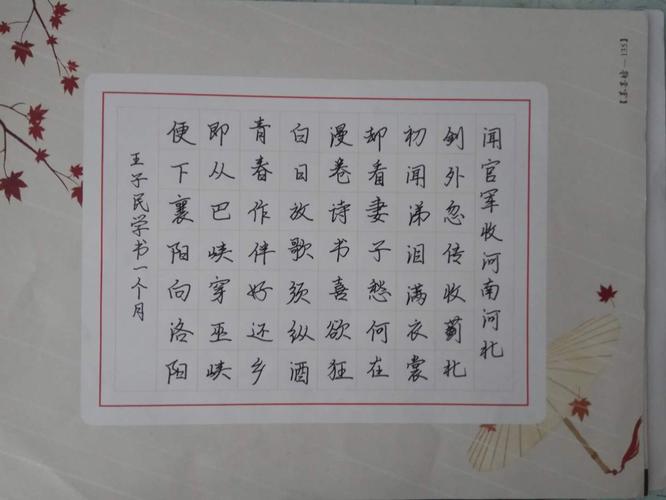 闻官军收河南河北
剑外忽传收蓟北
初闻涕泪满衣裳
却看妻子愁何在
漫卷诗书喜欲狂
白日放歌须纵酒
青春作伴好还乡
即从巴峡穿巫峡
便下襄阳向洛阳
王子民学书一个月